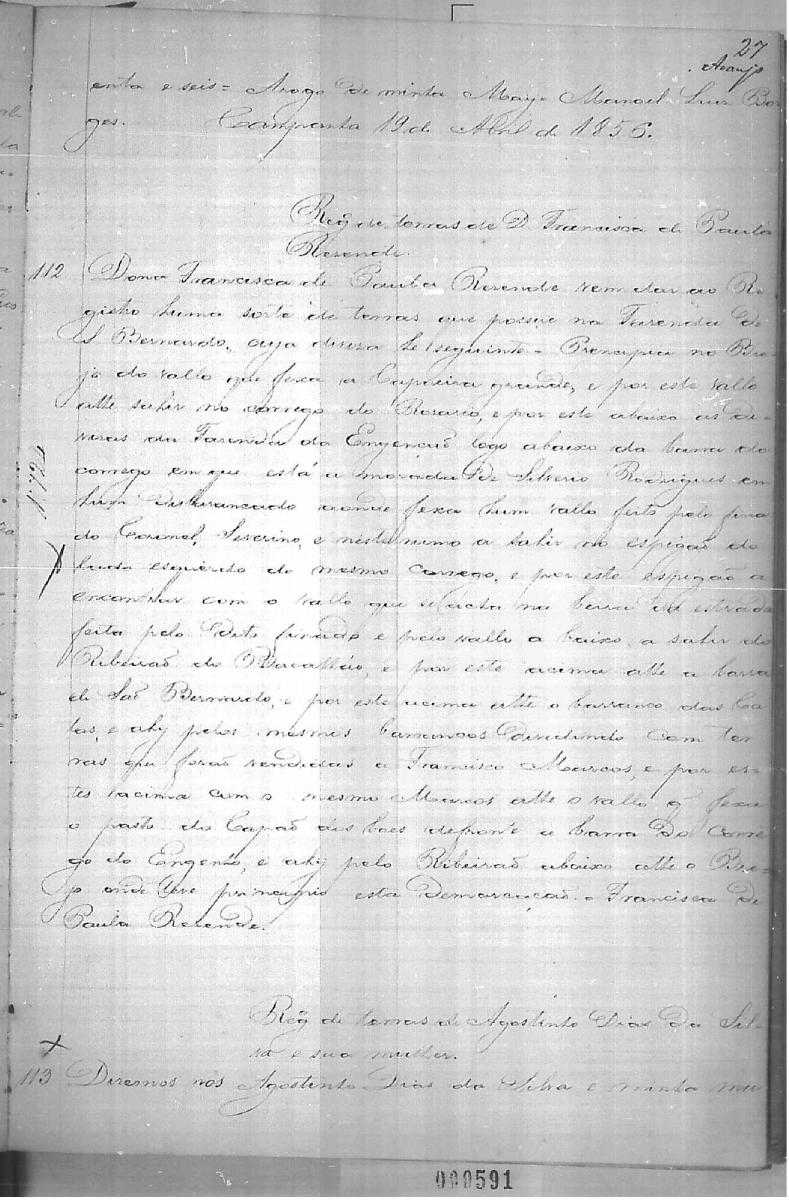 27
Araujo
enta e seis = Arogo de minha May = Manoel Luis Bor
ges. Campanha 19 de Abril de 1856.
Reg. de terras de D. Francisca de Paula
Rezende.
112 Dona Francisca de Paula Rezende vem dar ao Re
gistro huma sorte de terras que possue na Fazenda de
S Bernardo, cuja diviza he seguinte = Principia no Bre
jo do vallo que fexa a Capoeira grande, e por este vallo
athe sahir no corrego do Rosario, e por este abaixo as di=
vizas da Fazenda do Engenho logo abaixo da barra do
corrego em que está a morada de Silverio Rodrigues em
hum disbarancado aonde fexa hum vallo feito pelo fina
do Coronel Severino, e neste rumo a sahir no espigão do
lado esquerdo do mesmo Corrego, e por este espigão a
encontrar com o vallo que se acha na beira da estrada
feita pelo dito finado e pelo vallo a baixo, a sahir do
Ribeirão do Bacalháo, e por este acima athe a barra
de São Bernardo, e por este acima athe o barranco das Ca
tas, e ahy pelos mesmos barrancos dividindo com ter
ras que forão vendidas a Francisco Marcos, e por es=
tes acima com o mesmo Marcos athe o vallo q' fexa
o pasto do Capão dos boes defronte a barra do Corre
go do Engenho, e ahy pelo Ribeirão abaixo athe o Bre=
jo onde teve principio esta Demarcação. Francisca de
Paula Rezende.
Reg. de terras de Agostinho Dias da Sil=
va e sua mulher.
113 Dizemos nós Agostinho Dias da Silva e minha mu
000591